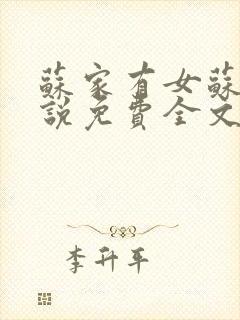 蘇家有女蘇
說免費全文
李升平